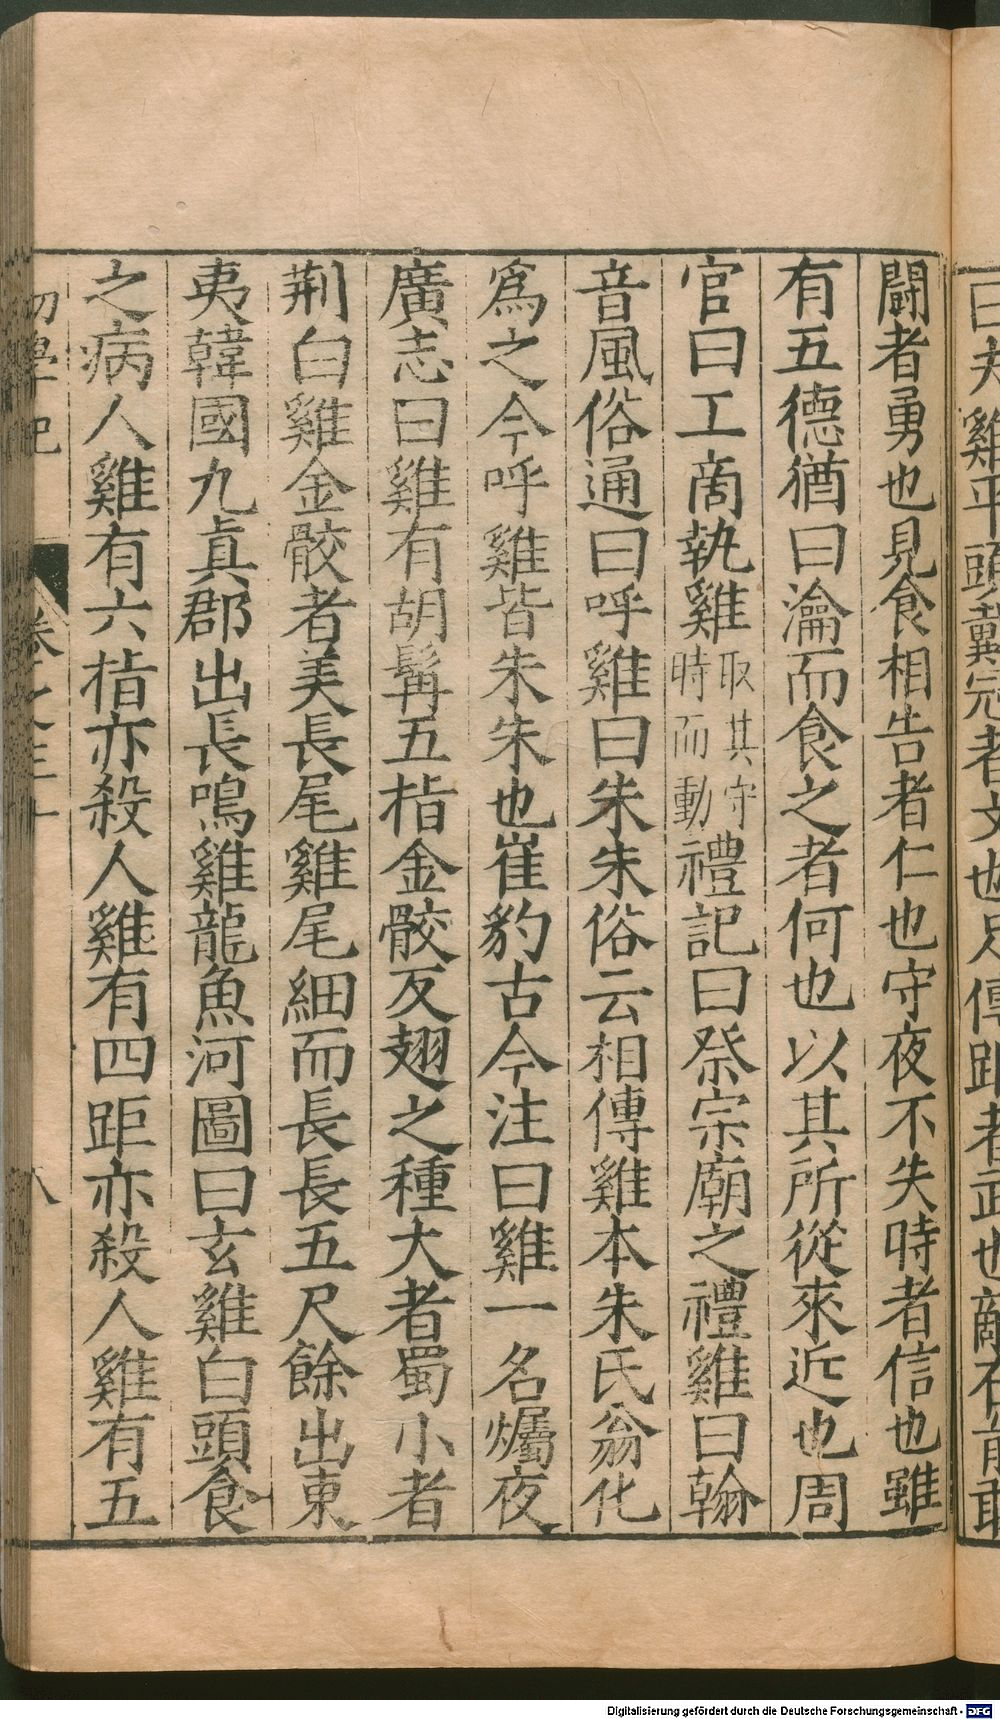 曰夫雞平頭戴冠者文也足傅距者武也敵在前敢
鬪者勇也見食相告者仁也守夜不失時者信也雖
有五德猶曰瀹而食之者何也以其所從來近也周
官曰工商執雞取其守時而動禮記曰祭宗廟之禮雞曰翰
音風俗通曰呼雞曰朱朱俗云相傳雞本朱氏翁化
爲之今呼雞皆朱朱也崔豹古今注曰雞一名爥夜
廣志曰雞有胡髯五指金骹反翅之種大者蜀小者
荆白雞金骹者美長尾雞尾細而長長五尺餘出東
夷韓國九眞郡出長鳴雞龍魚河圖曰玄雞白頭食
之病人雞有六指亦殺人雞有四距亦殺人雞有五
初學記
卷之三十
八
Digitalisierung gefördert durch die Deutsche Forschungsgemeinschaft - DFG